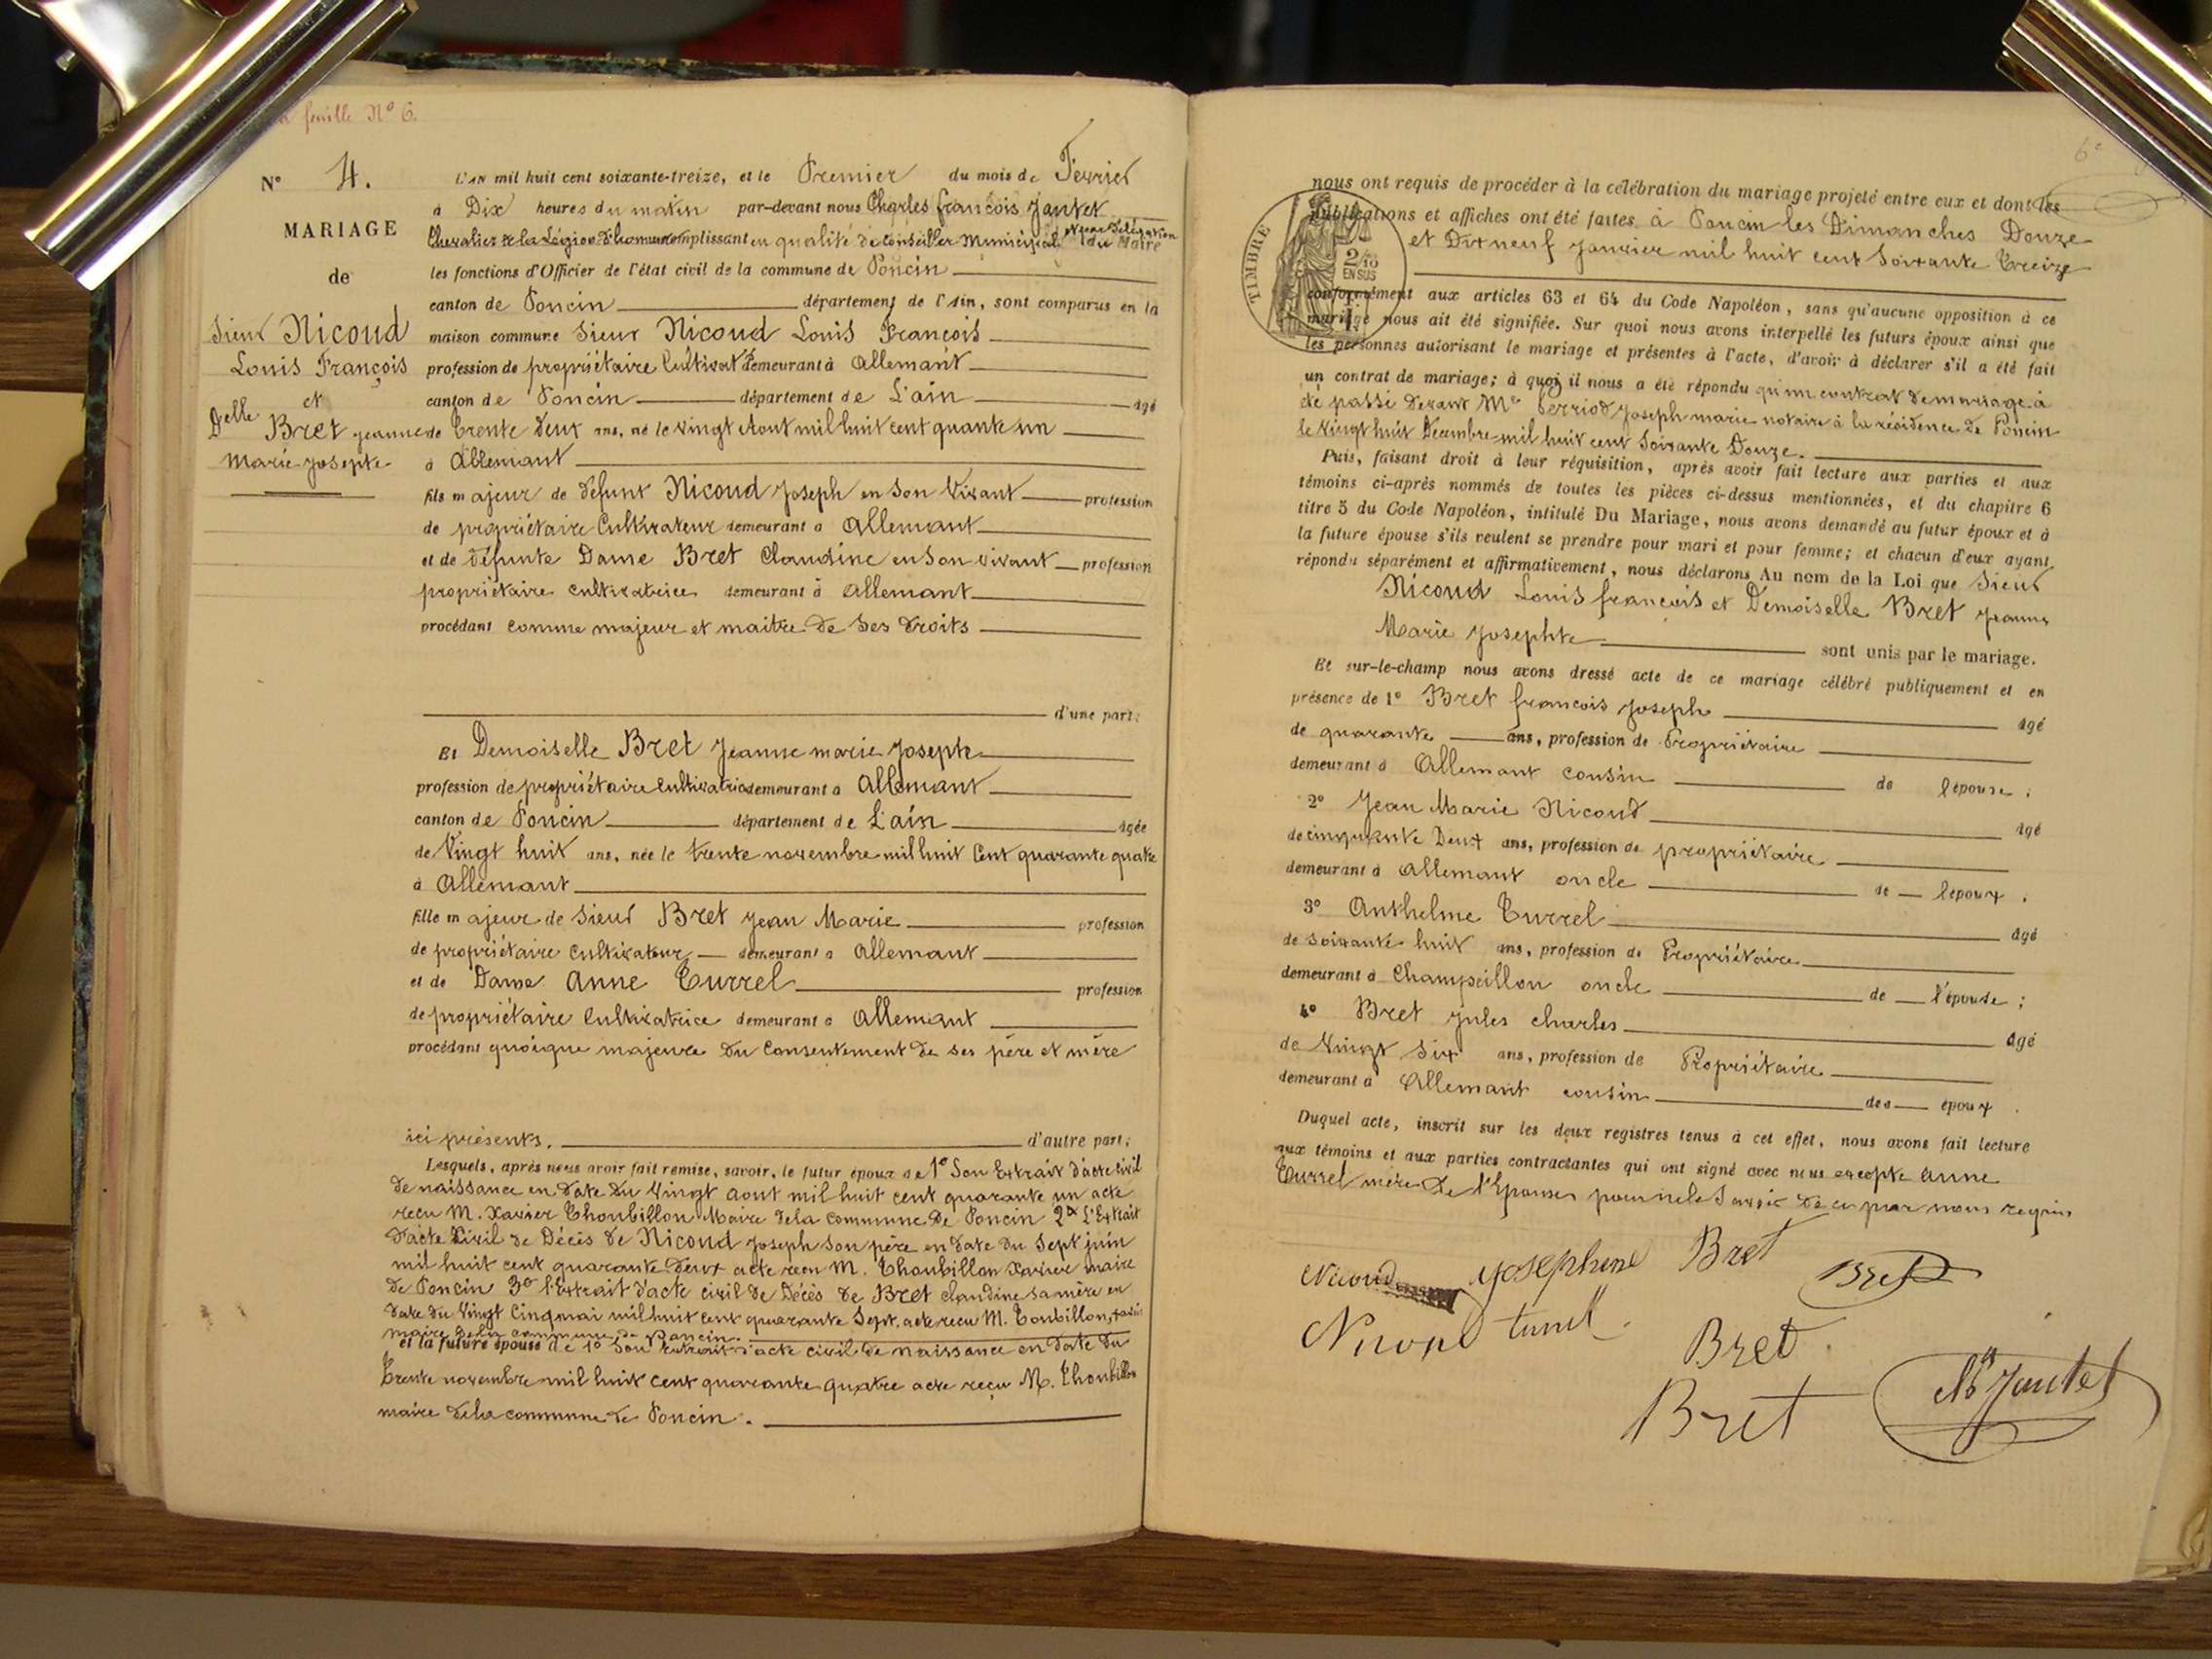 feuille N° 6.
N° 4.
MARIAGE
de
Sieur Nicoud
Louis François
et
Delle Bret Jeanne
Marie Josepte
L'AN mil huit cent soixante-treize, et le Premier du mois de Fevrier
à Dix heures du matin par-devant nous Charles françois Jantet
Chevalier de la Légion d'honneur remplissant en qualité de Conseiller Municipal et par Délégation du Maire
les fonctions d'Officier de l'état civil de la commune de Poncin
canton de Poncin département de l'Ain, sont comparus en la
maison commune Sieur Nicoud Louis François
profession de propriétaire Cultivatr demeurant à Allemant
canton de Poncin département de L'ain âgé
de Trente Deux ans, né le vingt Aout mil huit cent quante un
à Allemant
fils majeur de défunt Nicoud Joseph en son Vivant profession
de propriétaire Cultivateur demeurant à Allemant
et de défunte Dame Bret Claudine en Son vivant profession
propriétaire cultivatrice demeurant à Allemant
procédant comme majeur et maitre de Ses droits
d'une part;
Et Demoiselle Bret Jeanne marie Josepte
profession de propriétaire Cultivatrice demeurant à Allemant
canton de Poncin département de L'ain âgée
de Vingt huit ans, née le trente novembre mil huit Cent quarante quatre
à Allemant
fille majeur de Sieur Bret Jean Marie profession
de propriétaire Cultivateur demeurant à Allemant
et de Dame Anne Turrel profession
de propriétaire Cultivatrice demeurant à Allemant
procédant quoique majeure du Consentement de ses père et mère
ici présents. d'autre part;
Lesquels, après nous avoir fait remise, savoir, le futur époux de 1° Son Extrait d'acte Civil
de naissance en date du Vingt aout mil huit cent quarante un acte
reçu M. Xavier Thoubillon Maire de la commune de Poncin 2° L'Extrait
d'acte Civil de Décès de Nicoud Joseph Son père en date du Sept juin
mil huit cent quarante deux acte reçu M. Thoubillon Xavier maire
de Poncin 3° l'Extrait d'acte civil de Décès de Bret Claudine sa mère en
date du Vingt Cinq mai mil huit cent quarante Sept, acte reçu M. Toubillon, Xavier
maire de la commune de Poncin.
et la future épouse de 1° Son Extrait d'acte civil de naissance en date du
Trente novembre mil huit cent quarante quatre acte reçu M. Thoubillon
maire de la commune de Poncin.
6e
TIMBRE
2/10
EN SUS
nous ont requis de procéder à la célébration du mariage projeté entre eux et dont les
publications et affiches ont été faites à Poncin les Dimanches Douze
et Dix neuf Janvier mil huit cent Soixante Treize
conformément aux articles 63 et 64 du Code Napoléon, sans qu'aucune opposition à ce
mariage nous ait été signifiée. Sur quoi nous avons interpellé les futurs époux ainsi que
les personnes autorisant le mariage et présentes à l'acte, d'avoir à déclarer s'il a été fait
un contrat de mariage; à quoi il nous a été répondu qu'un contrat de mariage à
été passé devant Me Perriod Joseph marie notaire à la résidence de Poncin
le Vingt huit Décembre mil huit cent Soixante Douze.
Puis, faisant droit à leur réquisition, après avoir fait lecture aux parties et aux
témoins ci-après nommés de toutes les pièces ci-dessus mentionnées, et du chapitre 6
titre 5 du Code Napoléon, intitulé Du Mariage, nous avons demandé au futur époux et à
la future épouse s'ils veulent se prendre pour mari et pour femme; et chacun d'eux ayant
répondu séparément et affirmativement, nous déclarons Au nom de la Loi que Sieur
Nicoud Louis françois et Demoiselle Bret Jeanne
Marie Josephte sont unis par le mariage.
Et sur-le-champ nous avons dressé acte de ce mariage célébré publiquement et en
présence de 1° Bret françois Joseph âgé
de quarante ans, profession de Propriétaire
demeurant à Allemant cousin de l'épouse;
2° Jean Marie Nicoud âgé
de cinquante Deux ans, profession de propriétaire
demeurant à Allemant oncle de l'époux.
3° Anthelme Turrel âgé
de soixante huit ans, profession de Propriétaire
demeurant à Champeillon oncle de l'épouse;
4° Bret Jules charles âgé
de Vingt Six ans, profession de Propriétaire
demeurant à Allemant cousin des époux.
Duquel acte, inscrit sur les deux registres tenus à cet effet, nous avons fait lecture
aux témoins et aux parties contractantes qui ont signé avec nous excepte Anne
Turrel mère de l'Epouse pour ne le Savoir de ce par nous requis
Nicoud Josephine Bret Bret
Nicoud turrel
Bret
Bret Ch Jantet